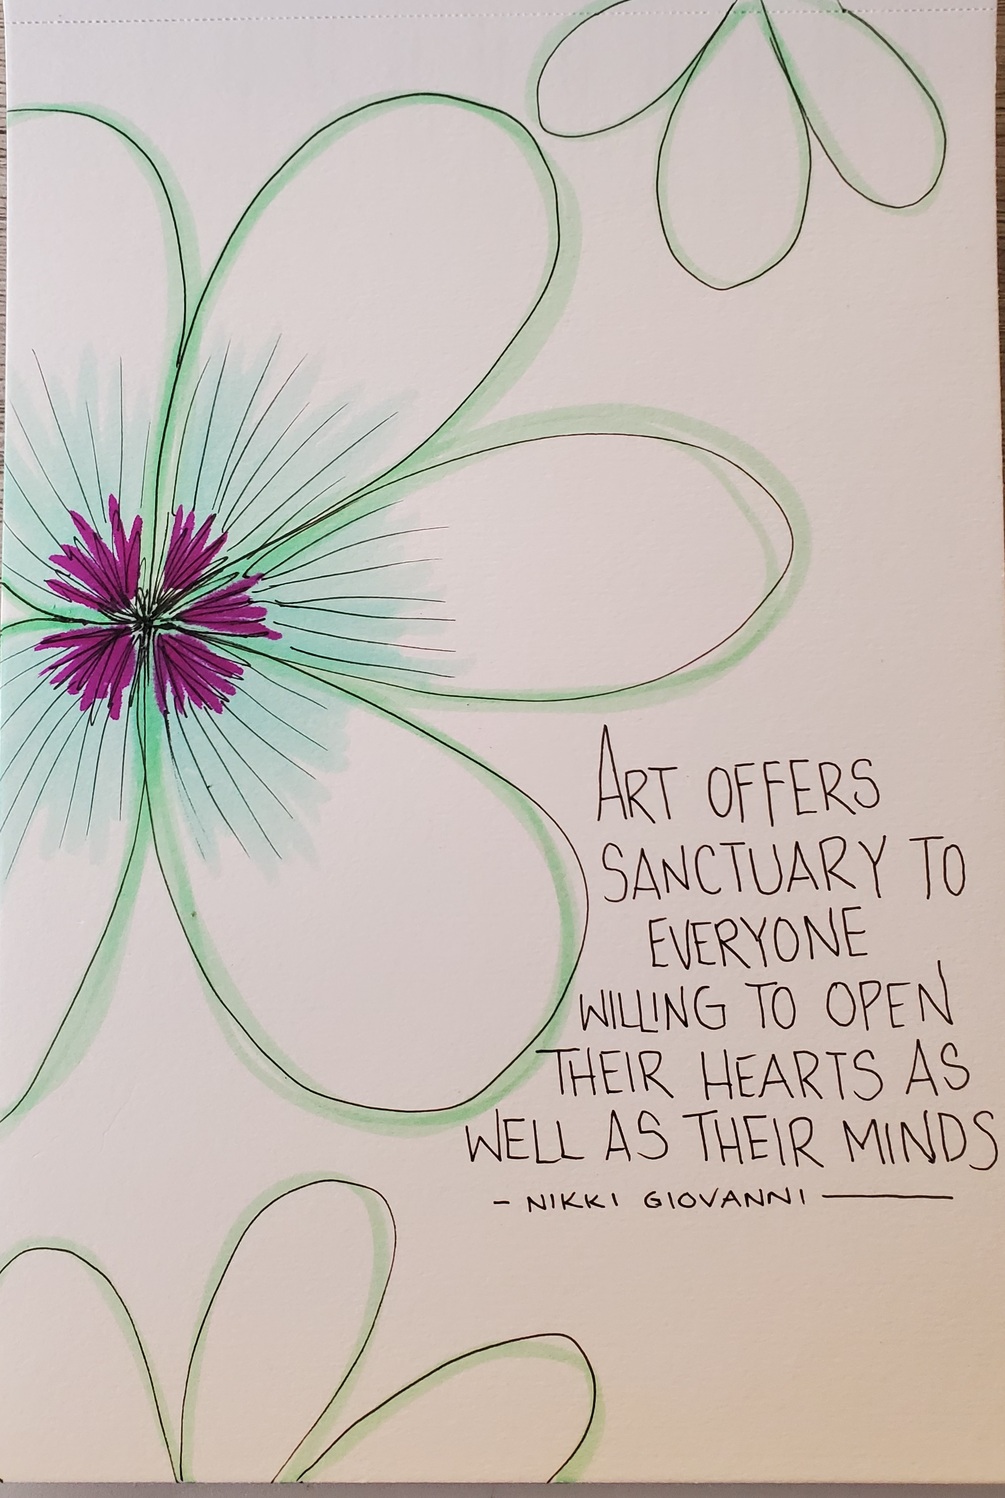 ART OFFERS
SANCTUARY TO
EVERYONE
WILLING TO OPEN
THEIR HEARTS AS
WELL AS THEIR MINDS
- NIKKI GIOVANNI